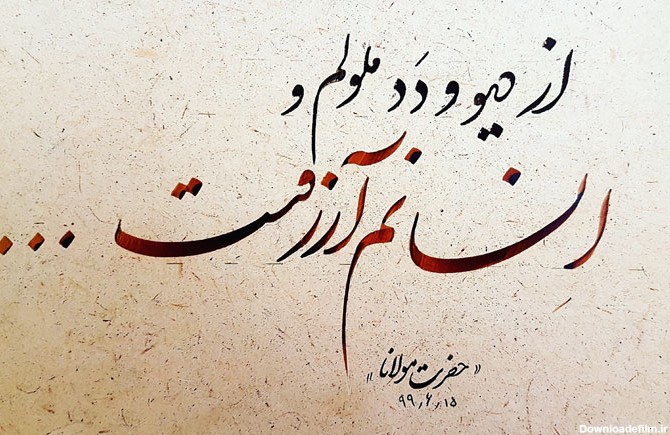 از دیو و دَد ملولم و
انسانم آرزوست ...
«حضرت مولانا»
۹۹٫۶٫۱۵
Downloadefilm.ir